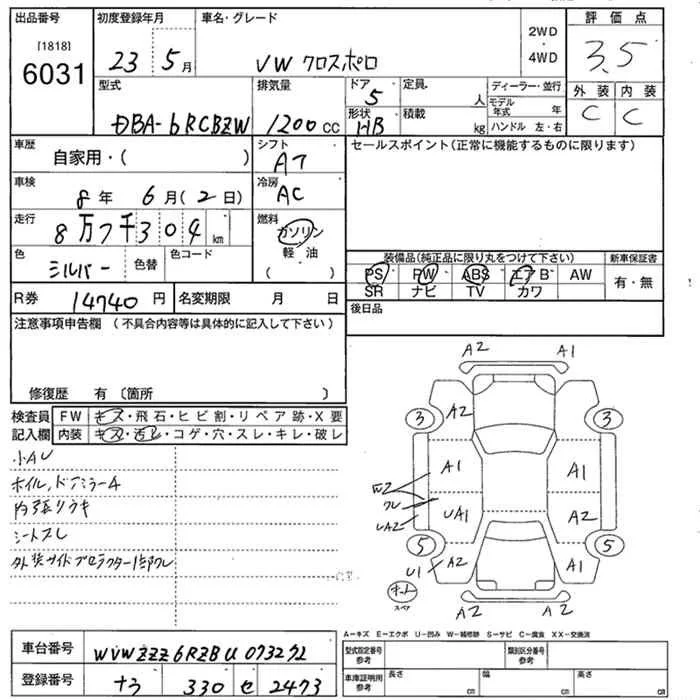 出品番号
[1818]
6031
初度登録年月
23 5月
車名・グレード
VW クロスポロ
2WD
・
4WD
評価点
3.5
外装 内装
C C
型式
DBA-6RCBZW
排気量
1200cc
ドア
5
形状
HB
定員 人
積載 kg
ディーラー・並行
モデル年式 年
ハンドル 左・右
車歴
自家用・( )
シフト
AT
セールスポイント(正常に機能するものに限ります)
車検
8年 6月(2日)
冷房
AC
走行
8万7千304km
燃料
ガソリン
軽油
( )
色
シルバー
色替
色コード
装備品(純正品に限り丸をつけて下さい)
新車保証書
PS PW ABS エアB AW
SR ナビ TV カワ
有・無
R券 14740円
名変期限 月 日
後日品
注意事項申告欄(不具合内容等は具体的に記入して下さい)
修復歴 有〔箇所 〕
検査員記入欄
FW キズ・飛石・ヒビ割・リペア跡・X要
内装 キズ・汚レ・コゲ・穴・スレ・キレ・破レ
小AU
ホイル,ドアミラーA
内張リウキ
シートスレ
外装サイドプロテクター1部ワレ
A2 A1
3 A2 3
A1 A1
W2
ワレ
UA2
UA1 A2
5 5
U1 A2 A1
スペア
A2 A2
A-キズ E-エクボ U-凹み W-補修跡 S-サビ C-腐食 XX-交換済
車台番号
WVWZZZ6RZBU073272
登録番号
なら 330 せ 2473
型式指定番号
参考
類別区分番号
参考
車庫証明用
参考
長さ cm
幅 cm
高さ cm